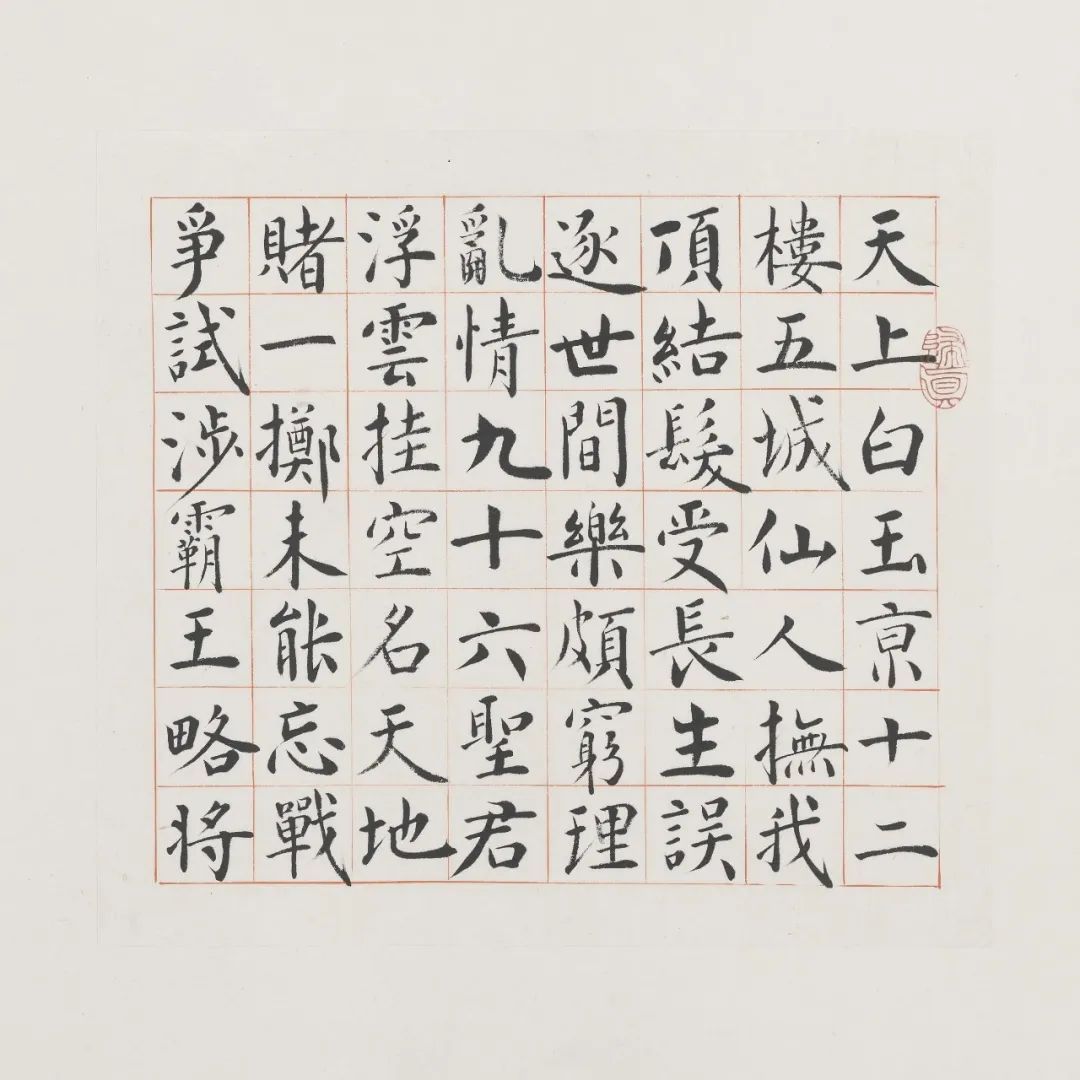 天上白玉京十二
樓五城仙人撫我
頂結髮受長生誤
逐世間樂頗窮理
亂情九十六聖君
浮雲挂空名天地
賭一擲未能忘戰
爭試涉霸王略將